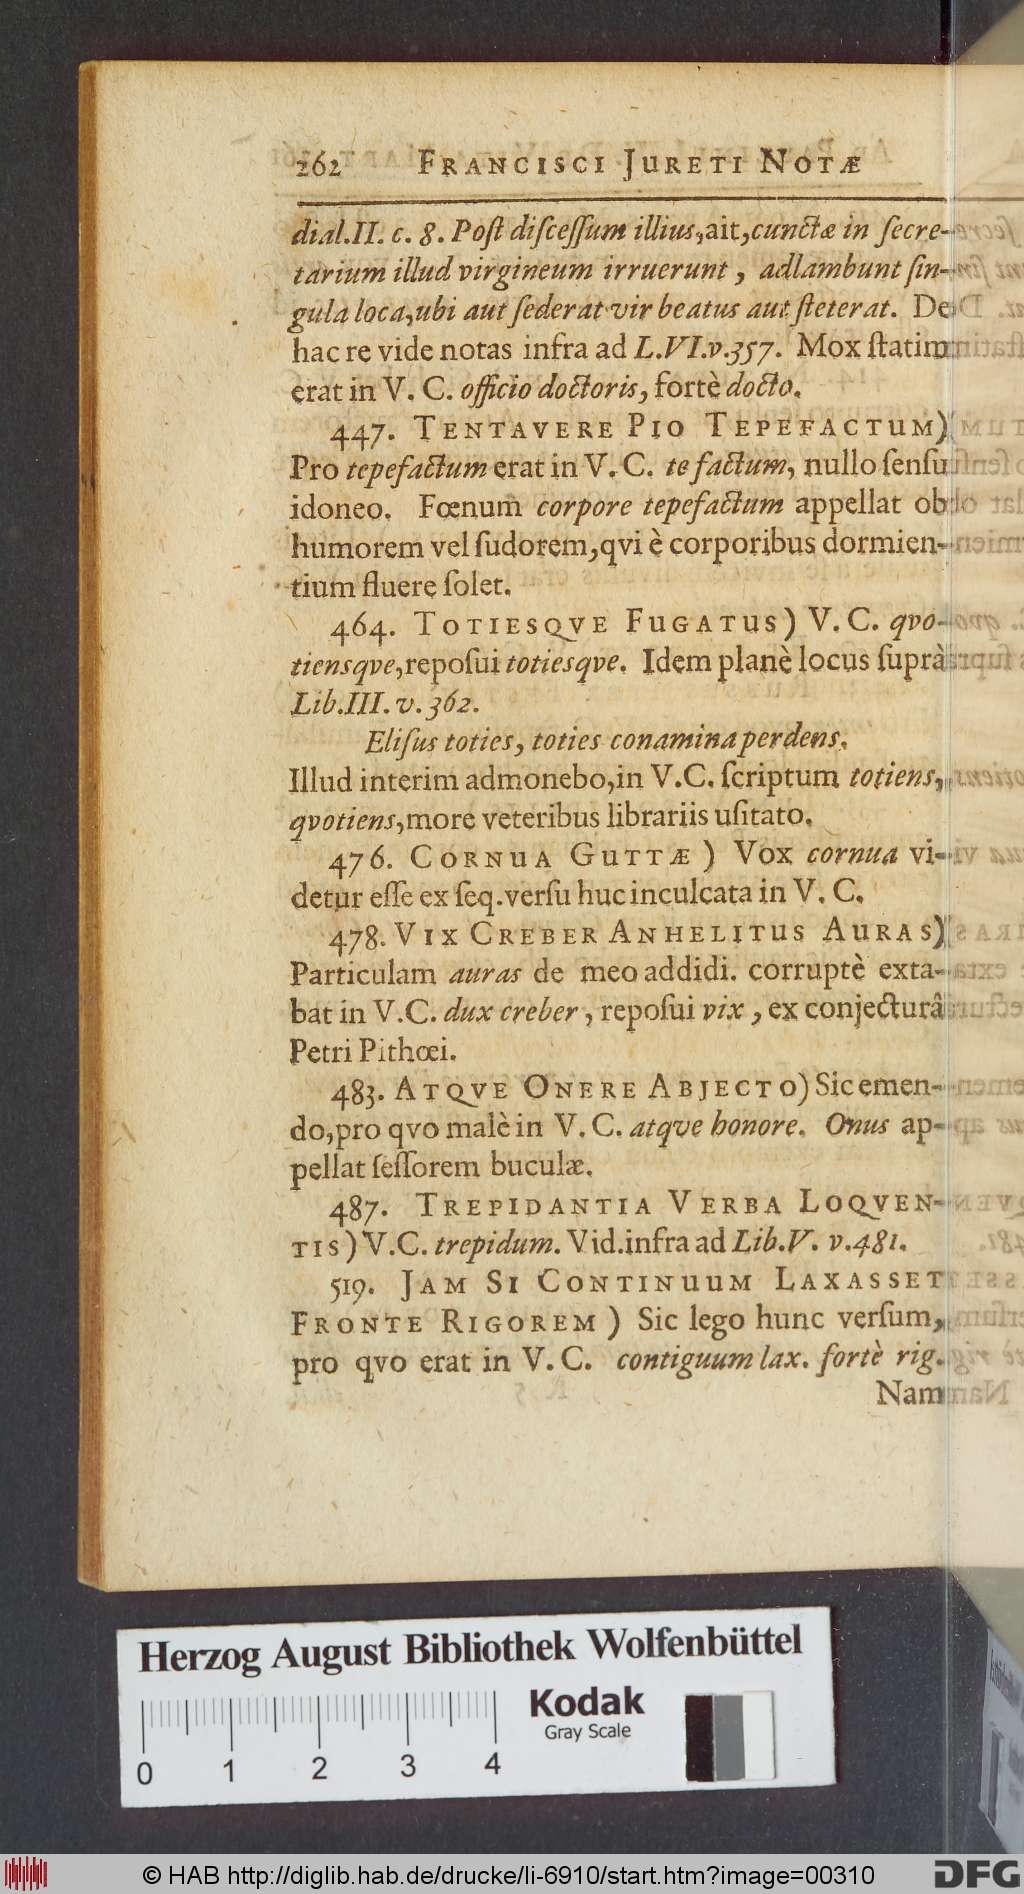 262 FRANCISCI JURETI NOTÆ
dial.II. c. 8. Poſt diſceſſum illius,ait,cunctæ in ſecre-
tarium illud virgineum irruerunt, adlambunt ſin-
gula loca,ubi aut ſederat vir beatus aut ſteterat. De
hac re vide notas infra ad L.VI.v.357. Mox ſtatim
erat in V. C. officio doctoris, fortè docto.
447. TENTAVERE PIO TEPEFACTUM)
Pro tepefactum erat in V. C. te factum, nullo ſenſu
idoneo. Fœnum corpore tepefactum appellat ob
humorem vel ſudorem,qvi è corporibus dormien-
tium fluere ſolet.
464. TOTIESQVE FUGATUS) V. C. qvo-
tiensqve,repoſui totiesqve. Idem planè locus ſuprà
Lib.III. v. 362.
Eliſus toties, toties conamina perdens.
Illud interim admonebo,in V.C. ſcriptum totiens,
qvotiens,more veteribus librariis uſitato.
476. CORNUA GUTTÆ) Vox cornua vi-
detur eſſe ex ſeq.verſu huc inculcata in V. C.
478. VIX CREBER ANHELITUS AURAS)
Particulam auras de meo addidi. corruptè exta-
bat in V.C. dux creber, repoſui vix, ex conjecturâ
Petri Pithœi.
483. ATQVE ONERE ABJECTO) Sic emen-
do,pro qvo malè in V. C. atqve honore. Onus ap-
pellat ſeſſorem buculæ.
487. TREPIDANTIA VERBA LOQVEN-
TIS) V.C. trepidum. Vid.infra ad Lib.V. v.481.
519. JAM SI CONTINUUM LAXASSET
FRONTE RIGOREM) Sic lego hunc verſum,
pro qvo erat in V. C. contiguum lax. fortè rig.
Nam
Herzog August Bibliothek Wolfenbüttel
Kodak
Gray Scale
0 1 2 3 4
© HAB http://diglib.hab.de/drucke/li-6910/start.htm?image=00310
DFG